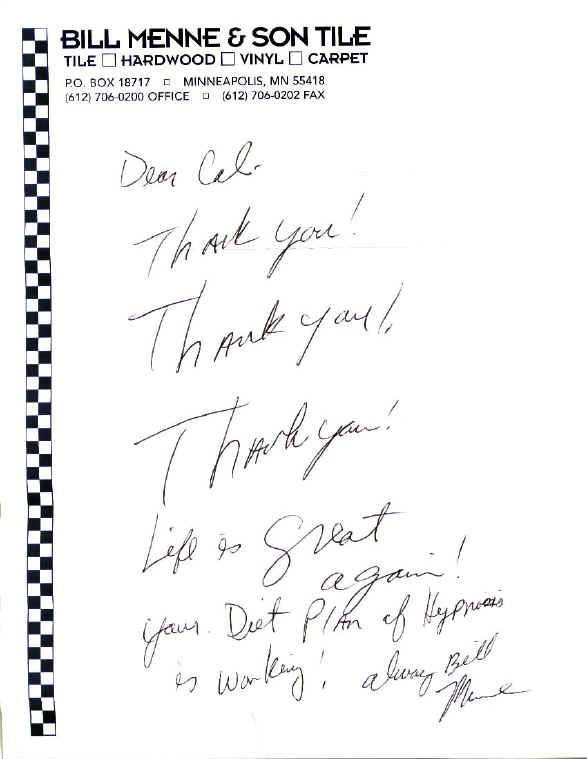 BILL MENNE & SON TILE
TILE □ HARDWOOD □ VINYL □ CARPET
P.O. BOX 18717 □ MINNEAPOLIS, MN 55418
(612) 706-0200 OFFICE □ (612) 706-0202 FAX
Dear Cal-
Thank you!
Thank you!
Thank you!
Life is Great
again!
your Diet Plan of Hypnosis
is working! always Bill
Menne